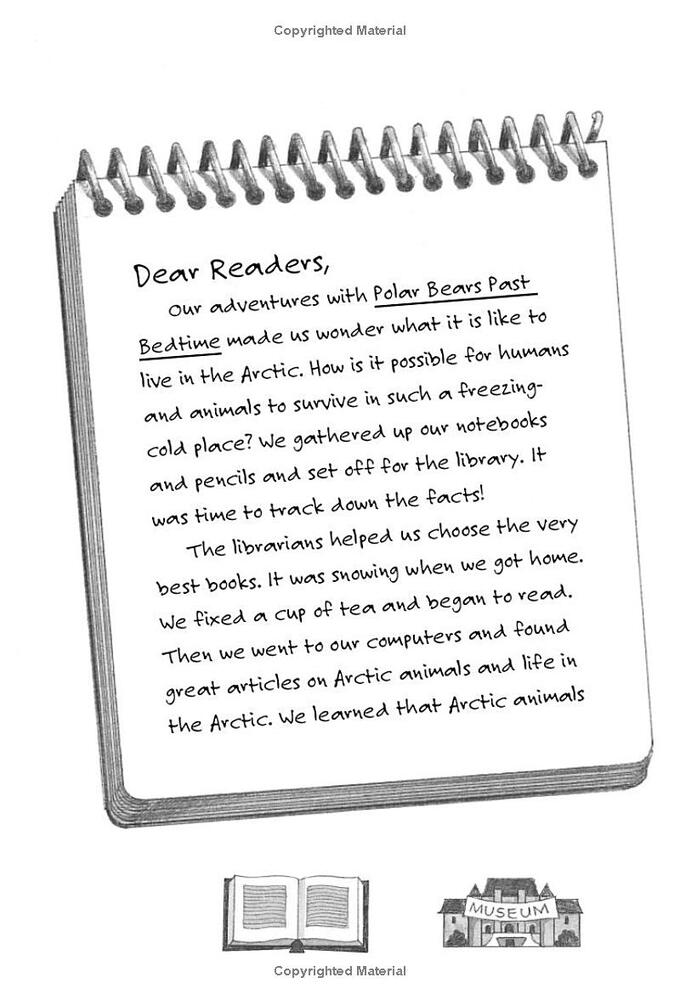 Copyrighted Material
Dear Readers,
Our adventures with Polar Bears Past
Bedtime made us wonder what it is like to
live in the Arctic. How is it possible for humans
and animals to survive in such a freezing-
cold place? We gathered up our notebooks
and pencils and set off for the library. It
was time to track down the facts!
The librarians helped us choose the very
best books. It was snowing when we got home.
We fixed a cup of tea and began to read.
Then we went to our computers and found
great articles on Arctic animals and life in
the Arctic. We learned that Arctic animals
MUSEUM
Copyrighted Material